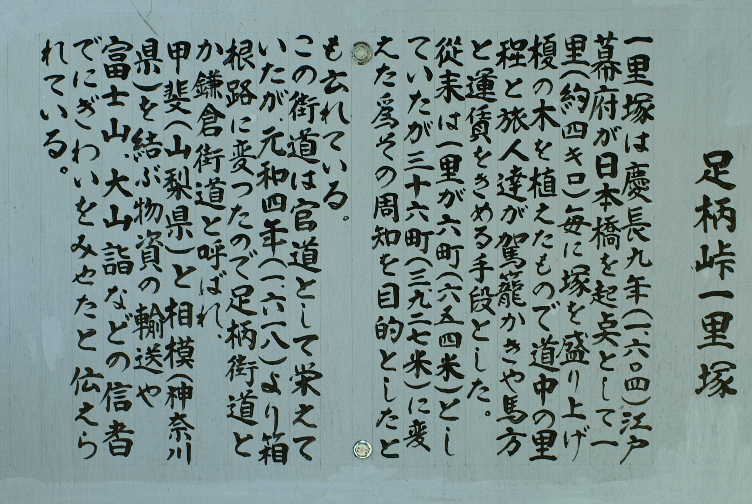 足柄峠一里塚
一里塚は慶長九年(一、六〇四)江戸
幕府が日本橋を起点として一
里(約四キロ)毎に塚を盛り上げ
榎の木を植えたもので、道中の里
程と旅人達が駕籠かきや馬方
と運賃をきめる手段とした。
従来は一里が六町(六五四米)とし
ていたが三十六町(三九二七米)に変
えた為その周知を目的としたと
も云れている。
この街道は官道として栄えて
いたが、元和四年(一、六一八)より箱
根路に変つたので足柄街道と
か鎌倉街道と呼ばれ、
甲斐(山梨県)と相模(神奈川
県)を結ぶ物資の輸送や
富士山、大山詣などの信者
でにぎわいをみせたと伝えら
れている。